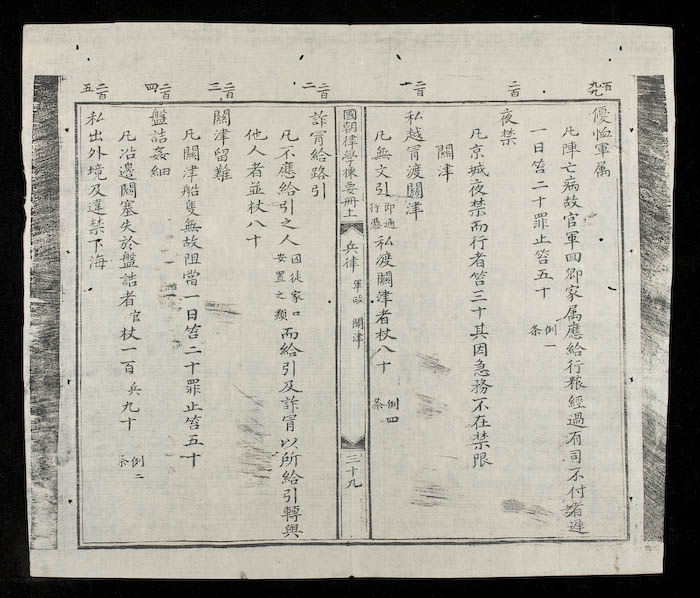 百九九
優恤軍属
凡陣亡病故官軍囬鄕家属應給行粮經過有司不付者遲
一日笞二十罪止笞五十 例一条
二百
夜禁
凡京城夜禁而行者笞三十其因急務不在禁限
關津
二百一
私越冐渡關津
凡無文引即通行憑私渡關津者杖八十 例四条
國朝律學揀要冊上 兵律 軍政 關津 三十九
二百二
詐冐給路引
凡不應給引之人因徒家口安置之類而給引及詐冐以所給引轉與
他人者並杖八十
二百三
關津留難
凡關津船隻無故阻當一日笞二十罪止笞五十
二百四
盤詰姦細
凡沿邊關塞失於盤詰者官杖一百兵九十 例二条
二百五
私出外境及違禁下海